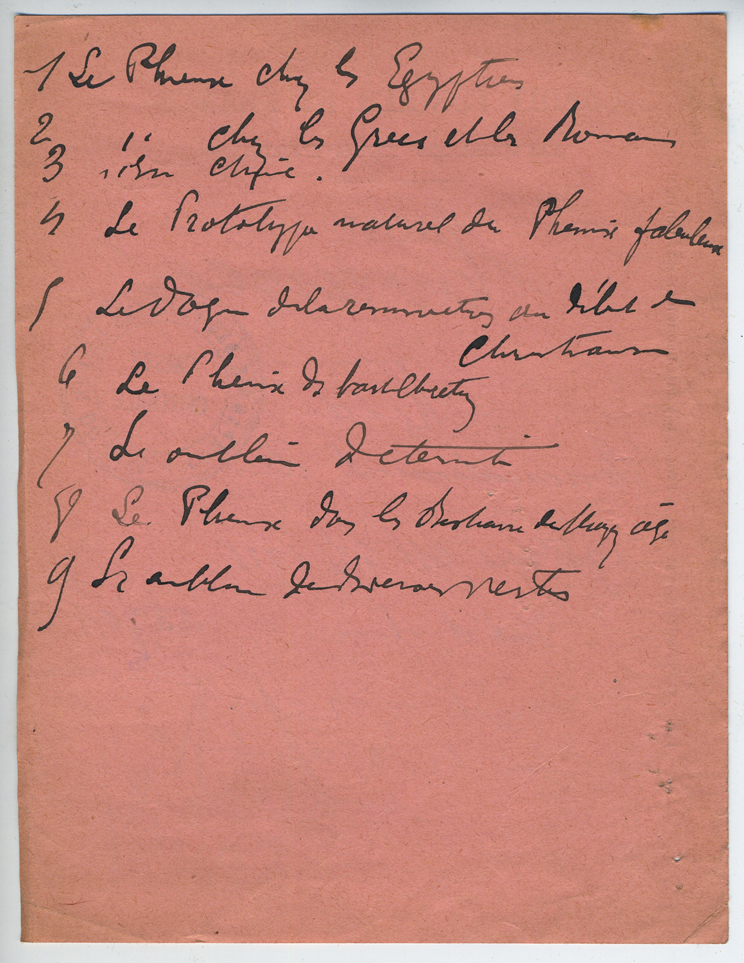 1 Le Phenix chez les Egyptiens
2 '' chez les Grecs et les Romains
3 '' en Chine.
4 Le Prototype naturel du Phenix fabuleux
5 Le Dogme de la resurrection au début du
Christianisme
6 Le Phenix de
7 Le emblème d'eternité
8 Le Phenix dans les Bestiaires du Moyen age
9 Le emblème de diverses vertus